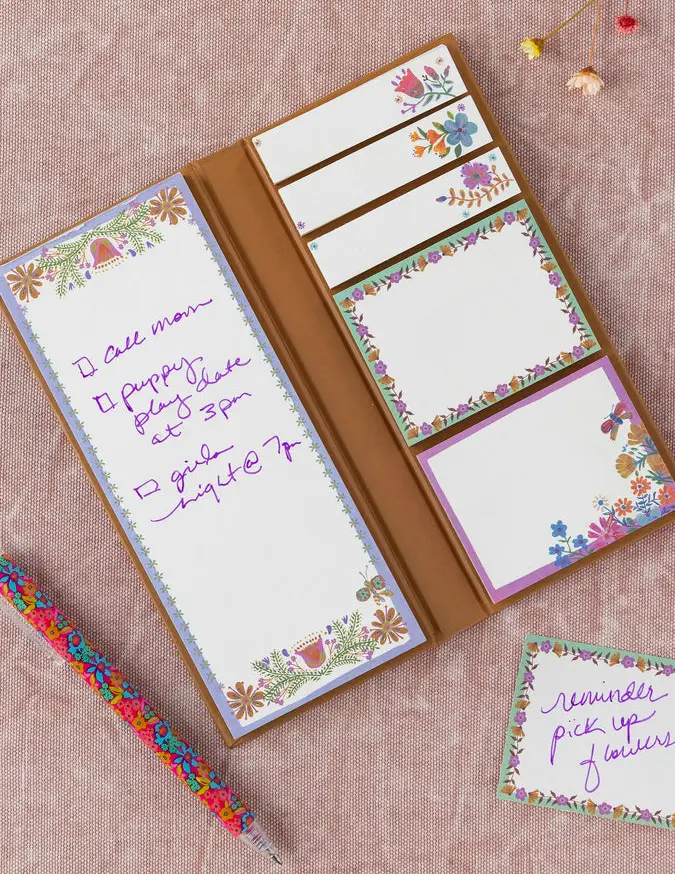 call mom
puppy
play date
at 3pm
girls
night @ 7pm
reminder
pick up
flowers